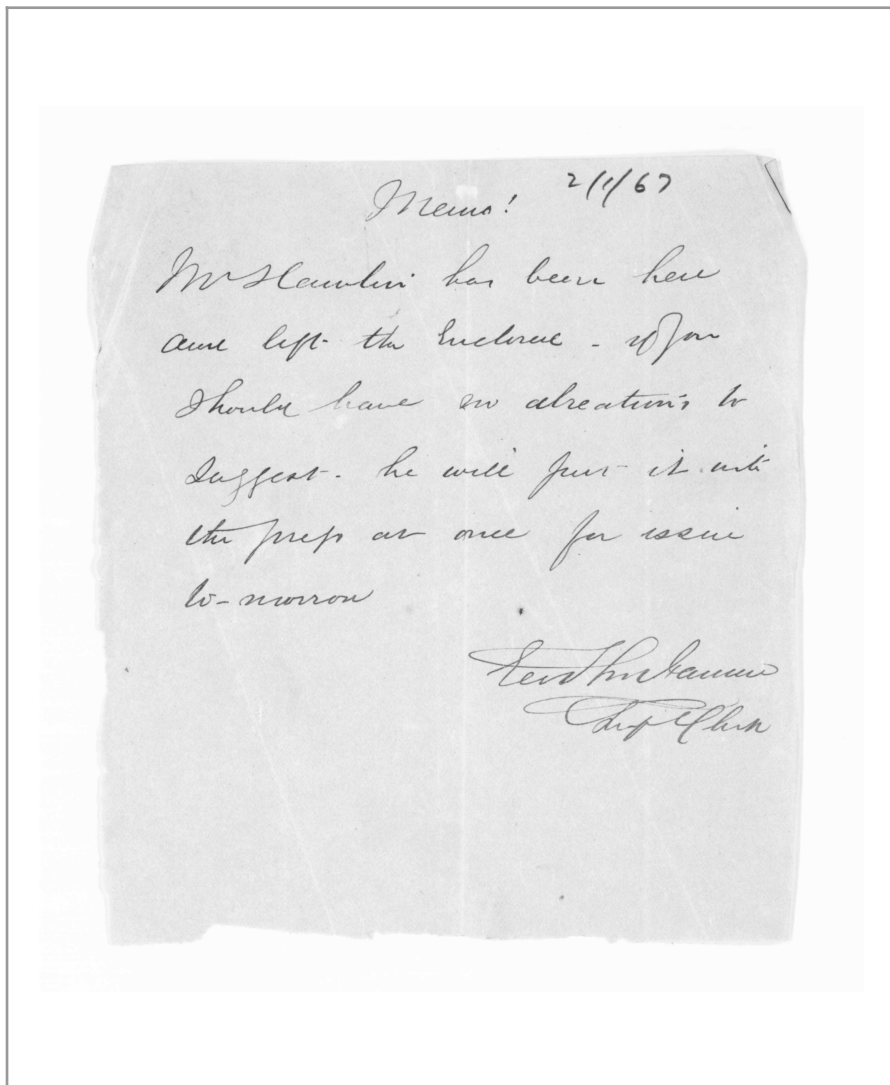 Memo! 2/1/67
Mr Hamlin has been here
and left the Enclosed - if you
should have no alterations to
suggest - he will put it into
the press at once for issue
to-morrow
Clerk